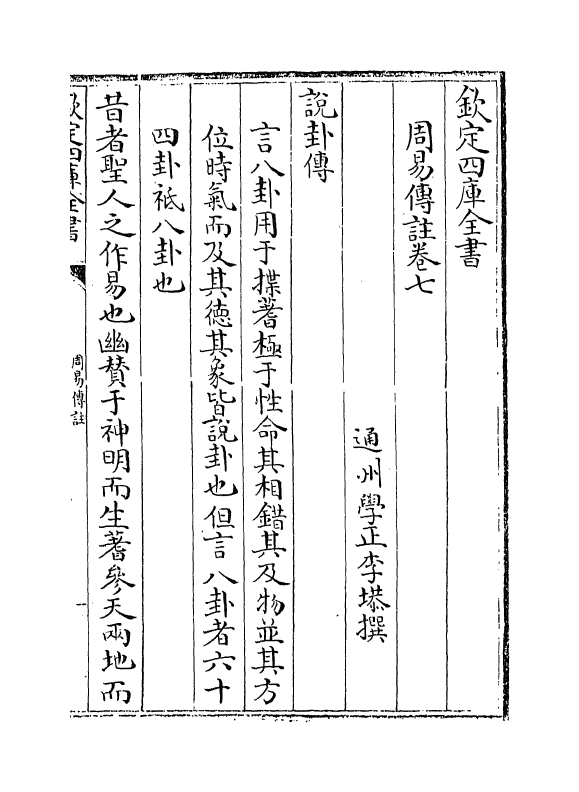 欽定四庫全書
周易傳註卷七
通州學正李塨撰
說卦傳
言八卦用于揲蓍極于性命其相錯其及物並其方
位時氣而及其德其象皆說卦也但言八卦者六十
四卦祗八卦也
昔者聖人之作易也幽賛于神明而生蓍參天兩地而
欽定四庫全書
周易傳註
一